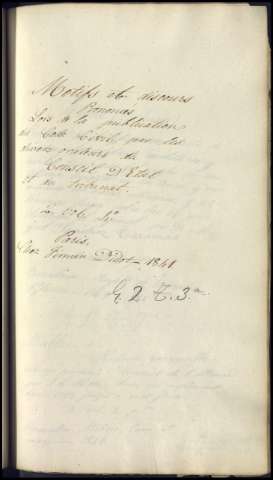 Motifs et discours
Prononcés
Lors de la publication
du Code Civil par les
divers orateurs du
Conseil D'Etat
et du tribunat.
2. vol. 4º
Paris.
Chez Firmin Didot – 1841
G. 2. T. 3.a